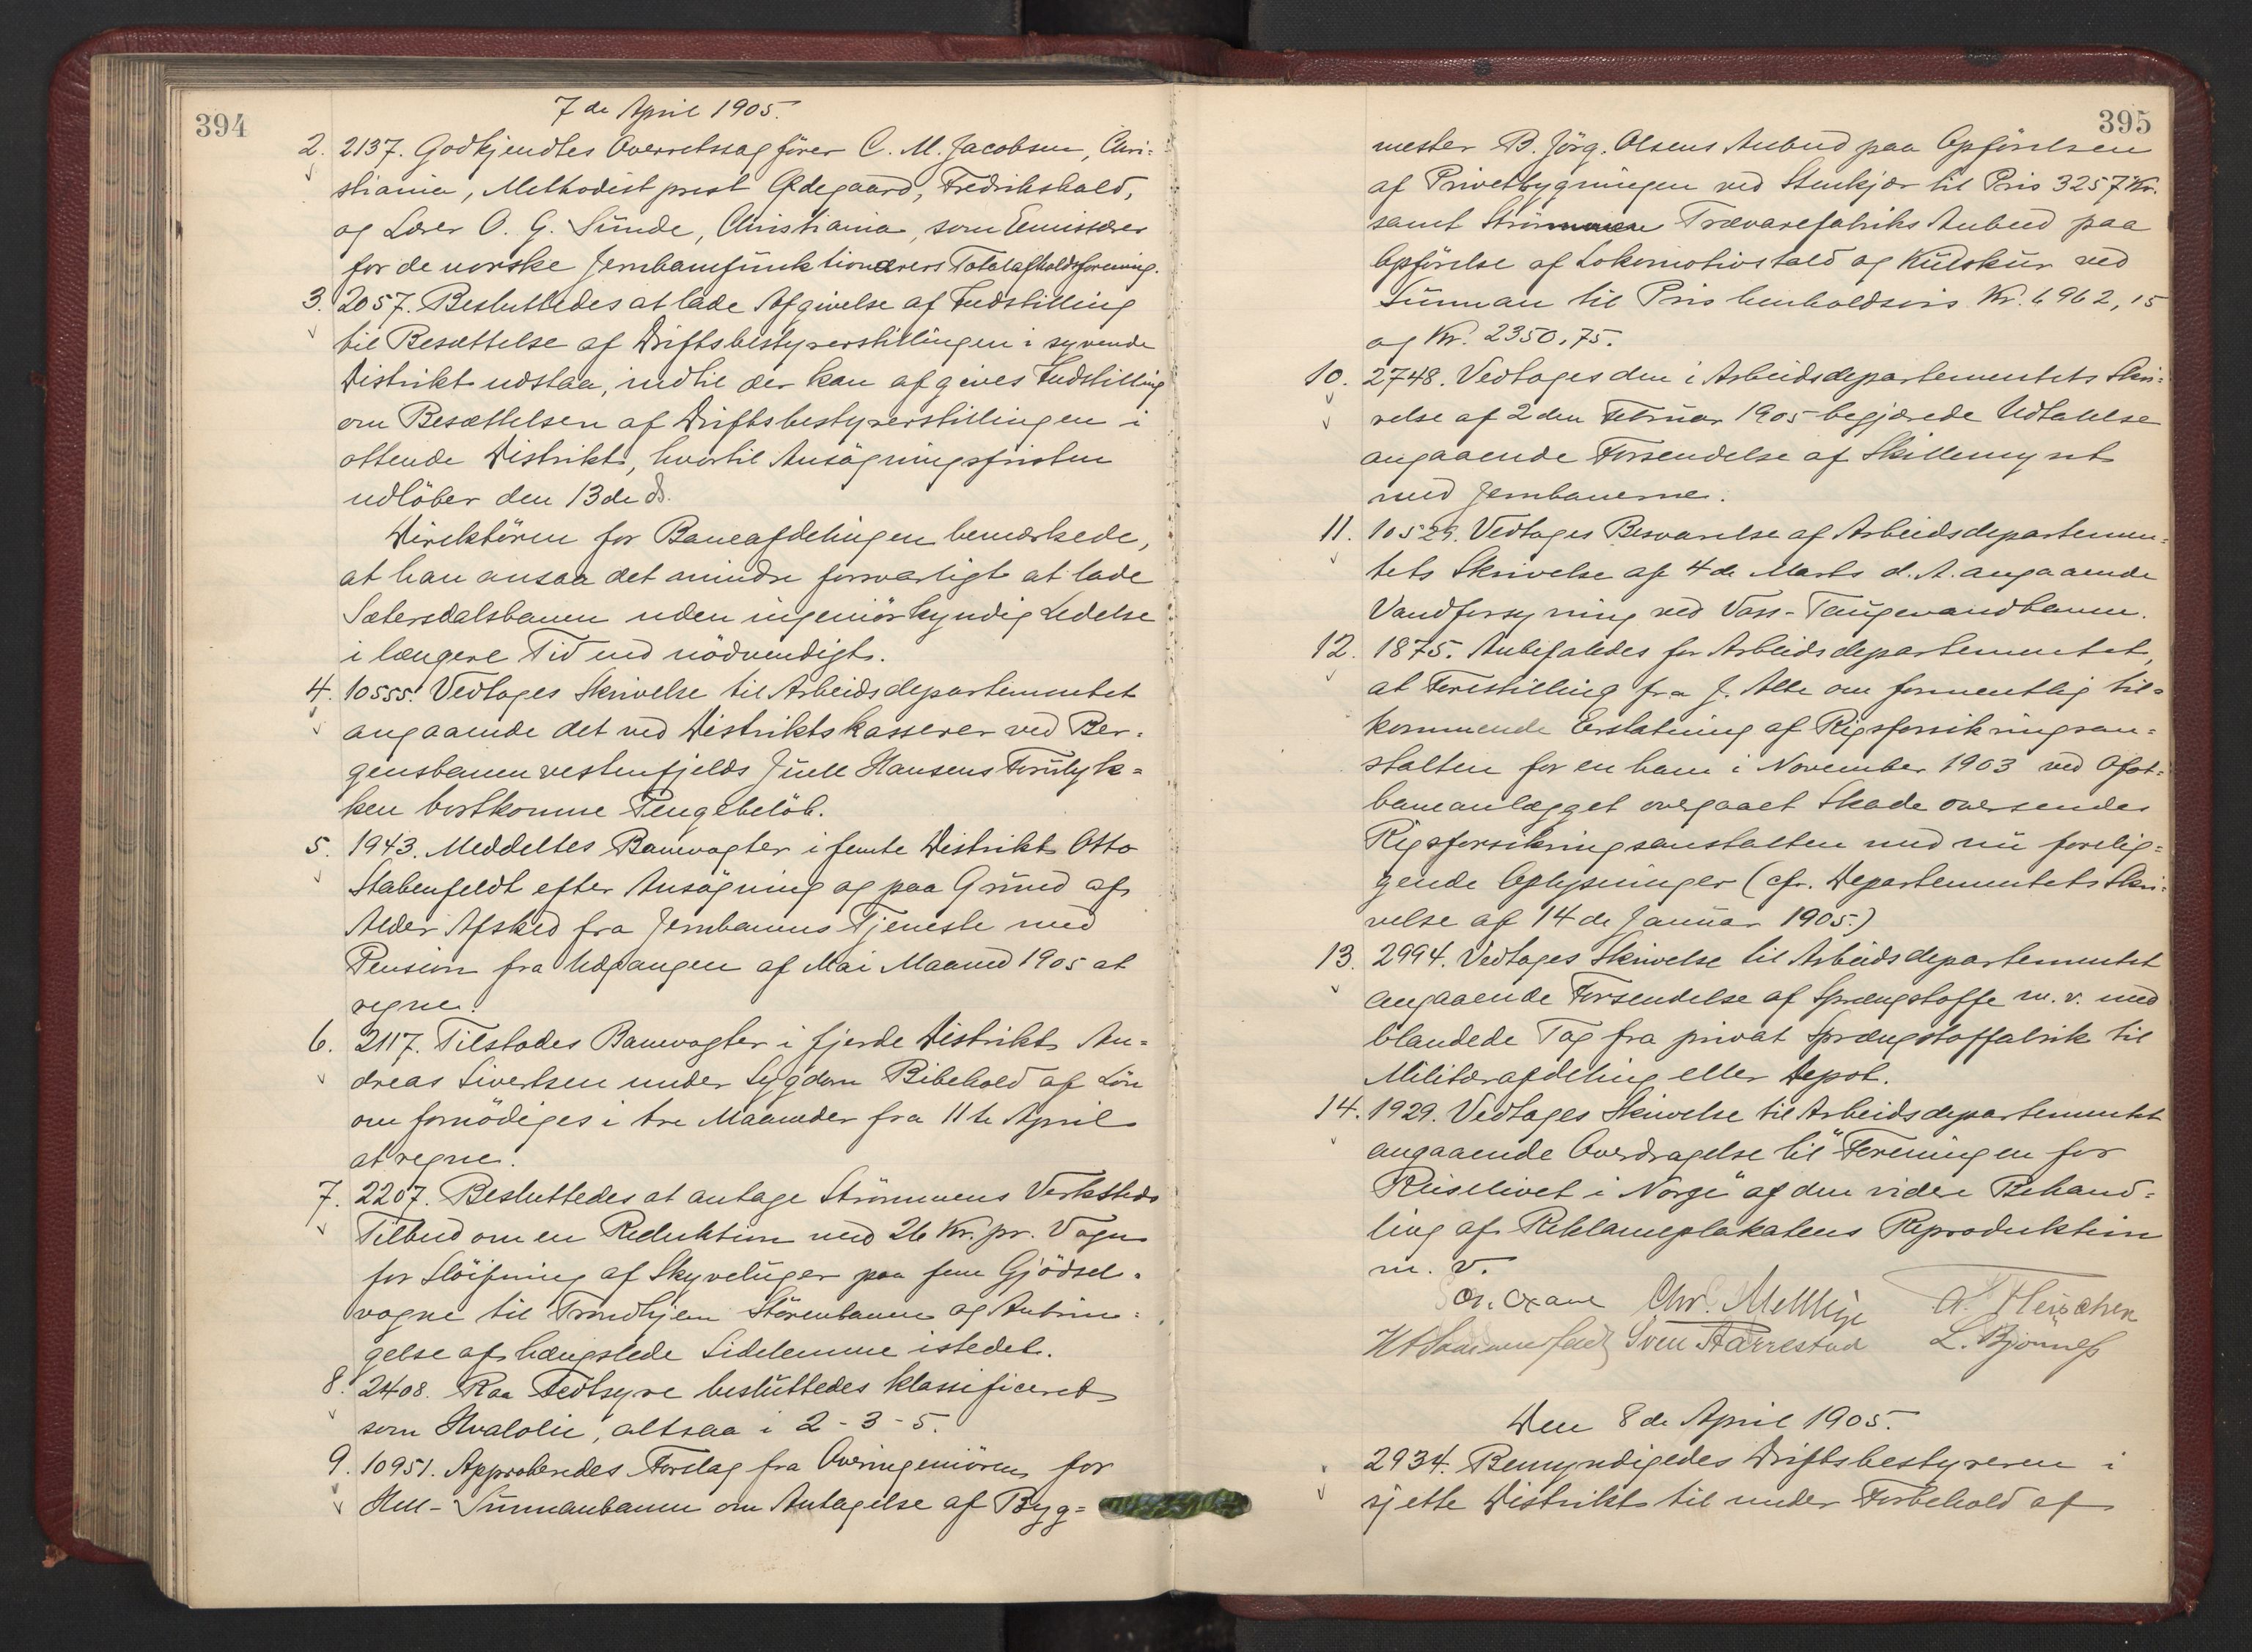 394
7de April 1905.
2. 2137. Godkjendtes Overretssagfører C. M. Jacobsen, Chri=
stiania, Methodistprest Ødegaard, Fredrikshald,
og Lærer O. G. Sunde, Christiania, som Emissærer
for de norske Jernbanefunktionærers Totalafholdsforening.
3. 2057. Besluttedes at lade Afgivelse af Indstilling
til Besættelse af Driftsbestyrerstillingen i syvende
Distrikt udstaa, indtil der kan afgives Indstilling
om Besættelsen af Driftsbestyrerstillingen i
ottende Distrikt, hvortil Ansøgningsfristen
udløber den 13de ds.
Direktøren for Baneafdelingen bemærkede,
at han ansaa det mindre forsvarligt at lade
Sætersdalsbanen uden ingeniørkyndig Ledelse
i længere Tid end nødvendigt.
4. 10555. Vedtoges Skrivelse til Arbeidsdepartementet
angaaende det ved Distriktskasserer ved Ber=
gensbanen vestenfjelds Juell Hansens Forulyk=
ken bortkomne Pengebeløb.
5. 1943. Meddeltes Banevogter i femte Distrikt Otto
Stabenfeldt efter Ansøgning og paa Grund af
Alder Afsked fra Jernbanens Tjeneste med
Pension fra Udgangen af Mai Maaned 1905 at
regne.
6. 2117. Tilstodes Banevogter i fjerde Distrikt An=
dreas Sivertsen under Sygdom Bibehold af Løn
om fornødiges i tre Maaneder fra 11te April
at regne.
7. 2207. Besluttedes at antage Strømmens Verksteds
Tilbud om en Reduktion med 26 Kr. pr. Vogn
for Sløifning af Skyveluger paa fem Gjødsel=
vogne til Trondhjem Størenbanen og Anbrin=
gelse af hængslede Sidelemme istedet.
8. 2408. Raa Fedtsyre besluttedes klassificeret
som Hvalolie, altsaa i 2-3-5.
9. 10951. Approberedes Forslag fra Overingeniøren for
Hell-Sunnanbanen om Antagelse af Byg=
395
mester B. Jörg. Olsens Anbud paa Opførelsen
af Privetbygningen ved Stenkjær til Pris 3257 Kr.
samt Strømmen Trævarefabriks Anbud paa
Opførelse af Lokomotivstald og Kulskur ved
Sunnan til Pris henholdsvis Kr. 6962,15
og Kr. 2350,75.
10. 2748. Vedtoges den i Arbeidsdepartementets Skri=
velse af 2den Februar 1905 begjærede Udtalelse
angaaende Forsendelse af Skillemynt
med Jernbanerne.
11. 10529. Vedtoges Besvarelse af Arbeidsdepartemen=
tets Skrivelse af 4de Marts d. A. angaaende
Vandforsyning ved Voss-Taugevandbanen.
12. 1875. Anbefaledes for Arbeidsdepartementet,
at Forestilling fra J. Alte om formentlig til=
kommende Erstatning af Rigsforsikringsan=
stalten for en ham i November 1903 ved Ofot=
baneanlægget overgaaet Skade oversendes
Rigsforsikringsanstalten med nu forelig=
gende Oplysninger (cfr. Departementets Skri=
velse af 14de Januar 1905.)
13. 2994. Vedtoges Skrivelse til Arbeidsdepartementet
angaaende Forsendelse af Sprængstoffe m. v. med
blandede Tog fra privat Sprængstoffabrik til
Militærafdeling eller Depot.
14. 1929. Vedtoges Skrivelse til Arbeidsdepartementet
angaaende Overdragelse til "Foreningen for
Reiselivet i Norge" af den videre Behand=
ling af Reklameplakatens Reproduktion
m. v.
Chr. Mellbye
Sven Aarrestad L. Bjørnæs
Den 8de April 1905.
2934. Bemyndigedes Driftsbestyreren i
sjette Distrikt til under Forbehold af